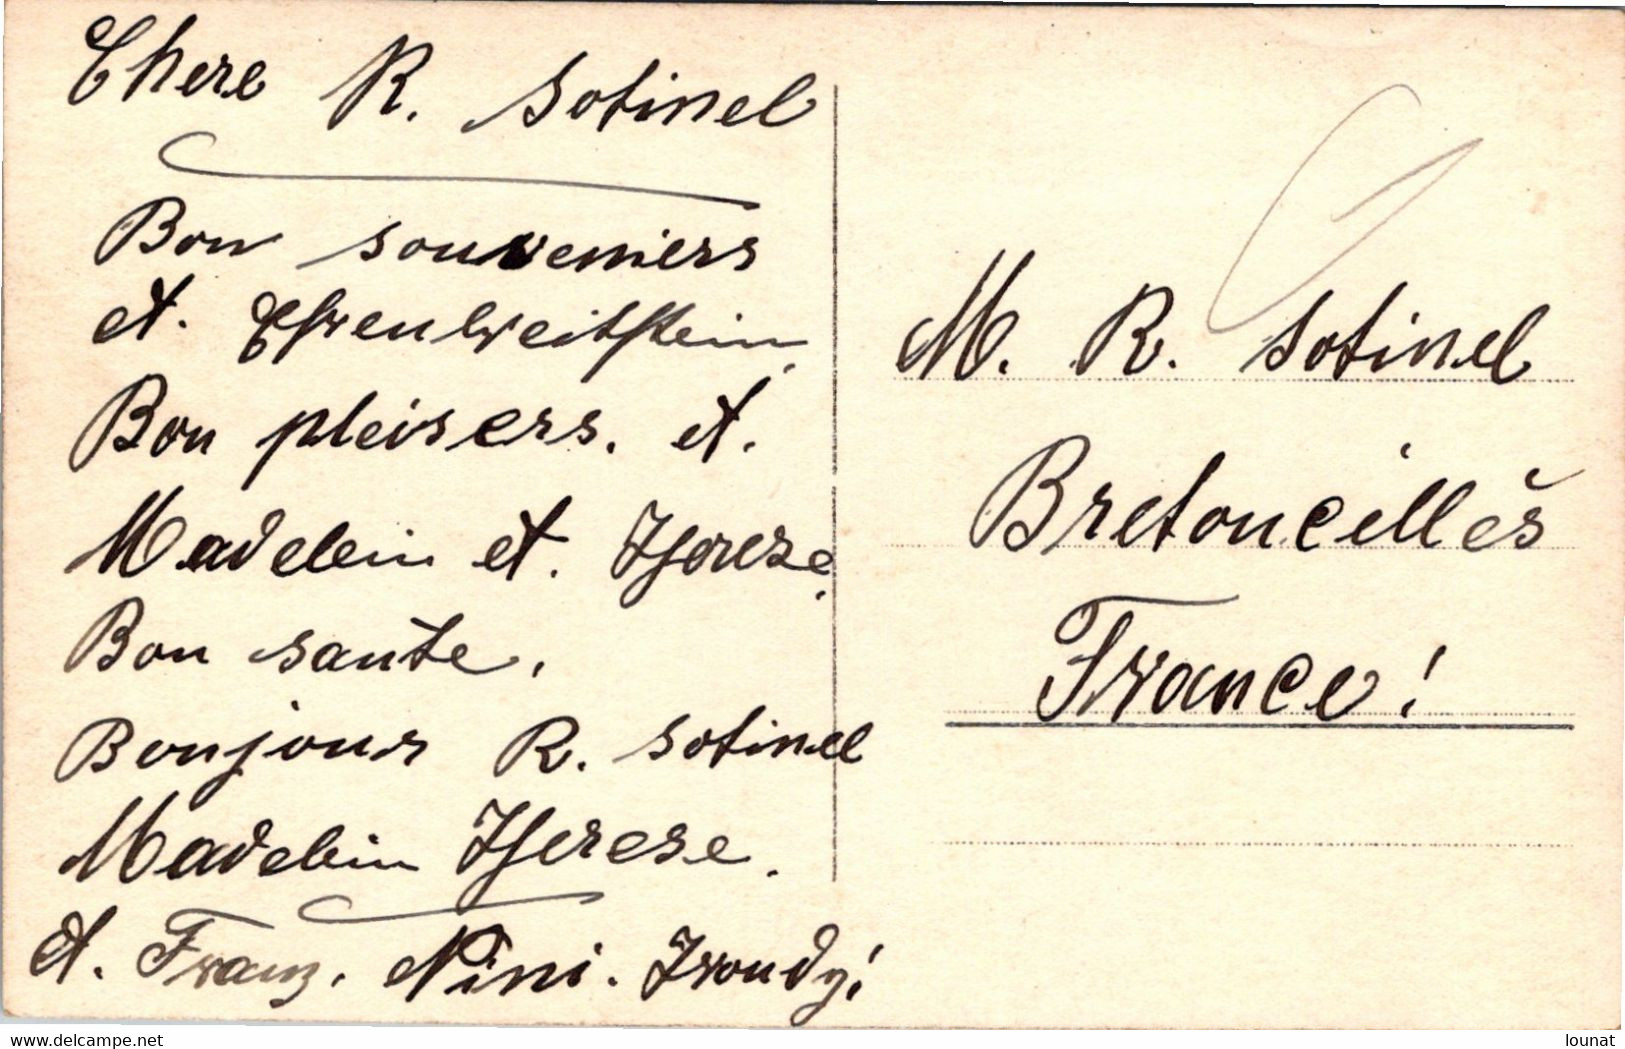 Chere R. Sotinel
Bon souveniers
et.
Bon pleisers. et.
Madelein et. Therese.
Bon sante.
Bonjour R. Sotinel
Madelein Therese.
et. Franz. Nini. Troudy!
M. R. Sotinel
Bretoncilles
France!
www.delcampe.net
lounat